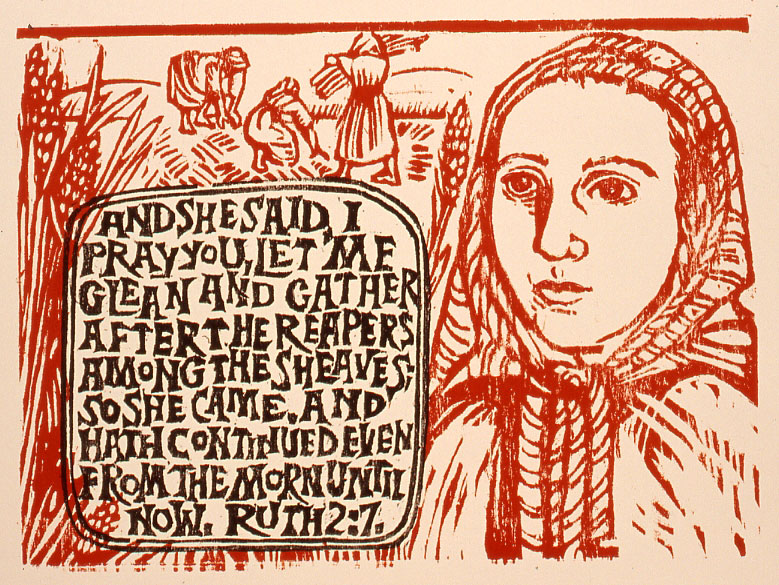 AND SHE SAID, I
PRAY YOU, LET ME
GLEAN AND GATHER
AFTER THE REAPERS
AMONG THE SHEAVES;
SO SHE CAME, AND
HATH CONTINUED EVEN
FROM THE MORN UNTIL
NOW. RUTH 2:7.